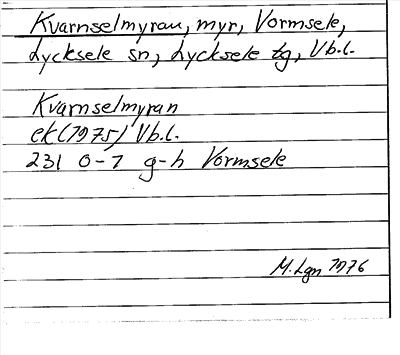 Kvarnselmyran, myr, Vormsele,
Lycksele sn, Lycksele tg, Vb.l.
Kvarnselmyran
ek(1975) Vb.l.
231 0-1 g-h Vormsele
M. Lgn 1976